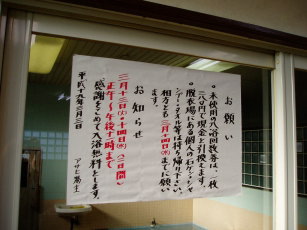 お願い
・未使用の入浴回数券は、一枚
三八〇円で現金と引換えます。
・脱衣場にある個人の石ケン・シャ
ンプー・タオル等は持ち帰り下さい。
三月十四日㈬までに願い
ます。
お知らせ
三月十三日㈫・十四日㈬〈二日間〉
正午〜午後十一時
感謝をこめて入浴無料とします。
平成十九年三月三日
アサヒ湯主